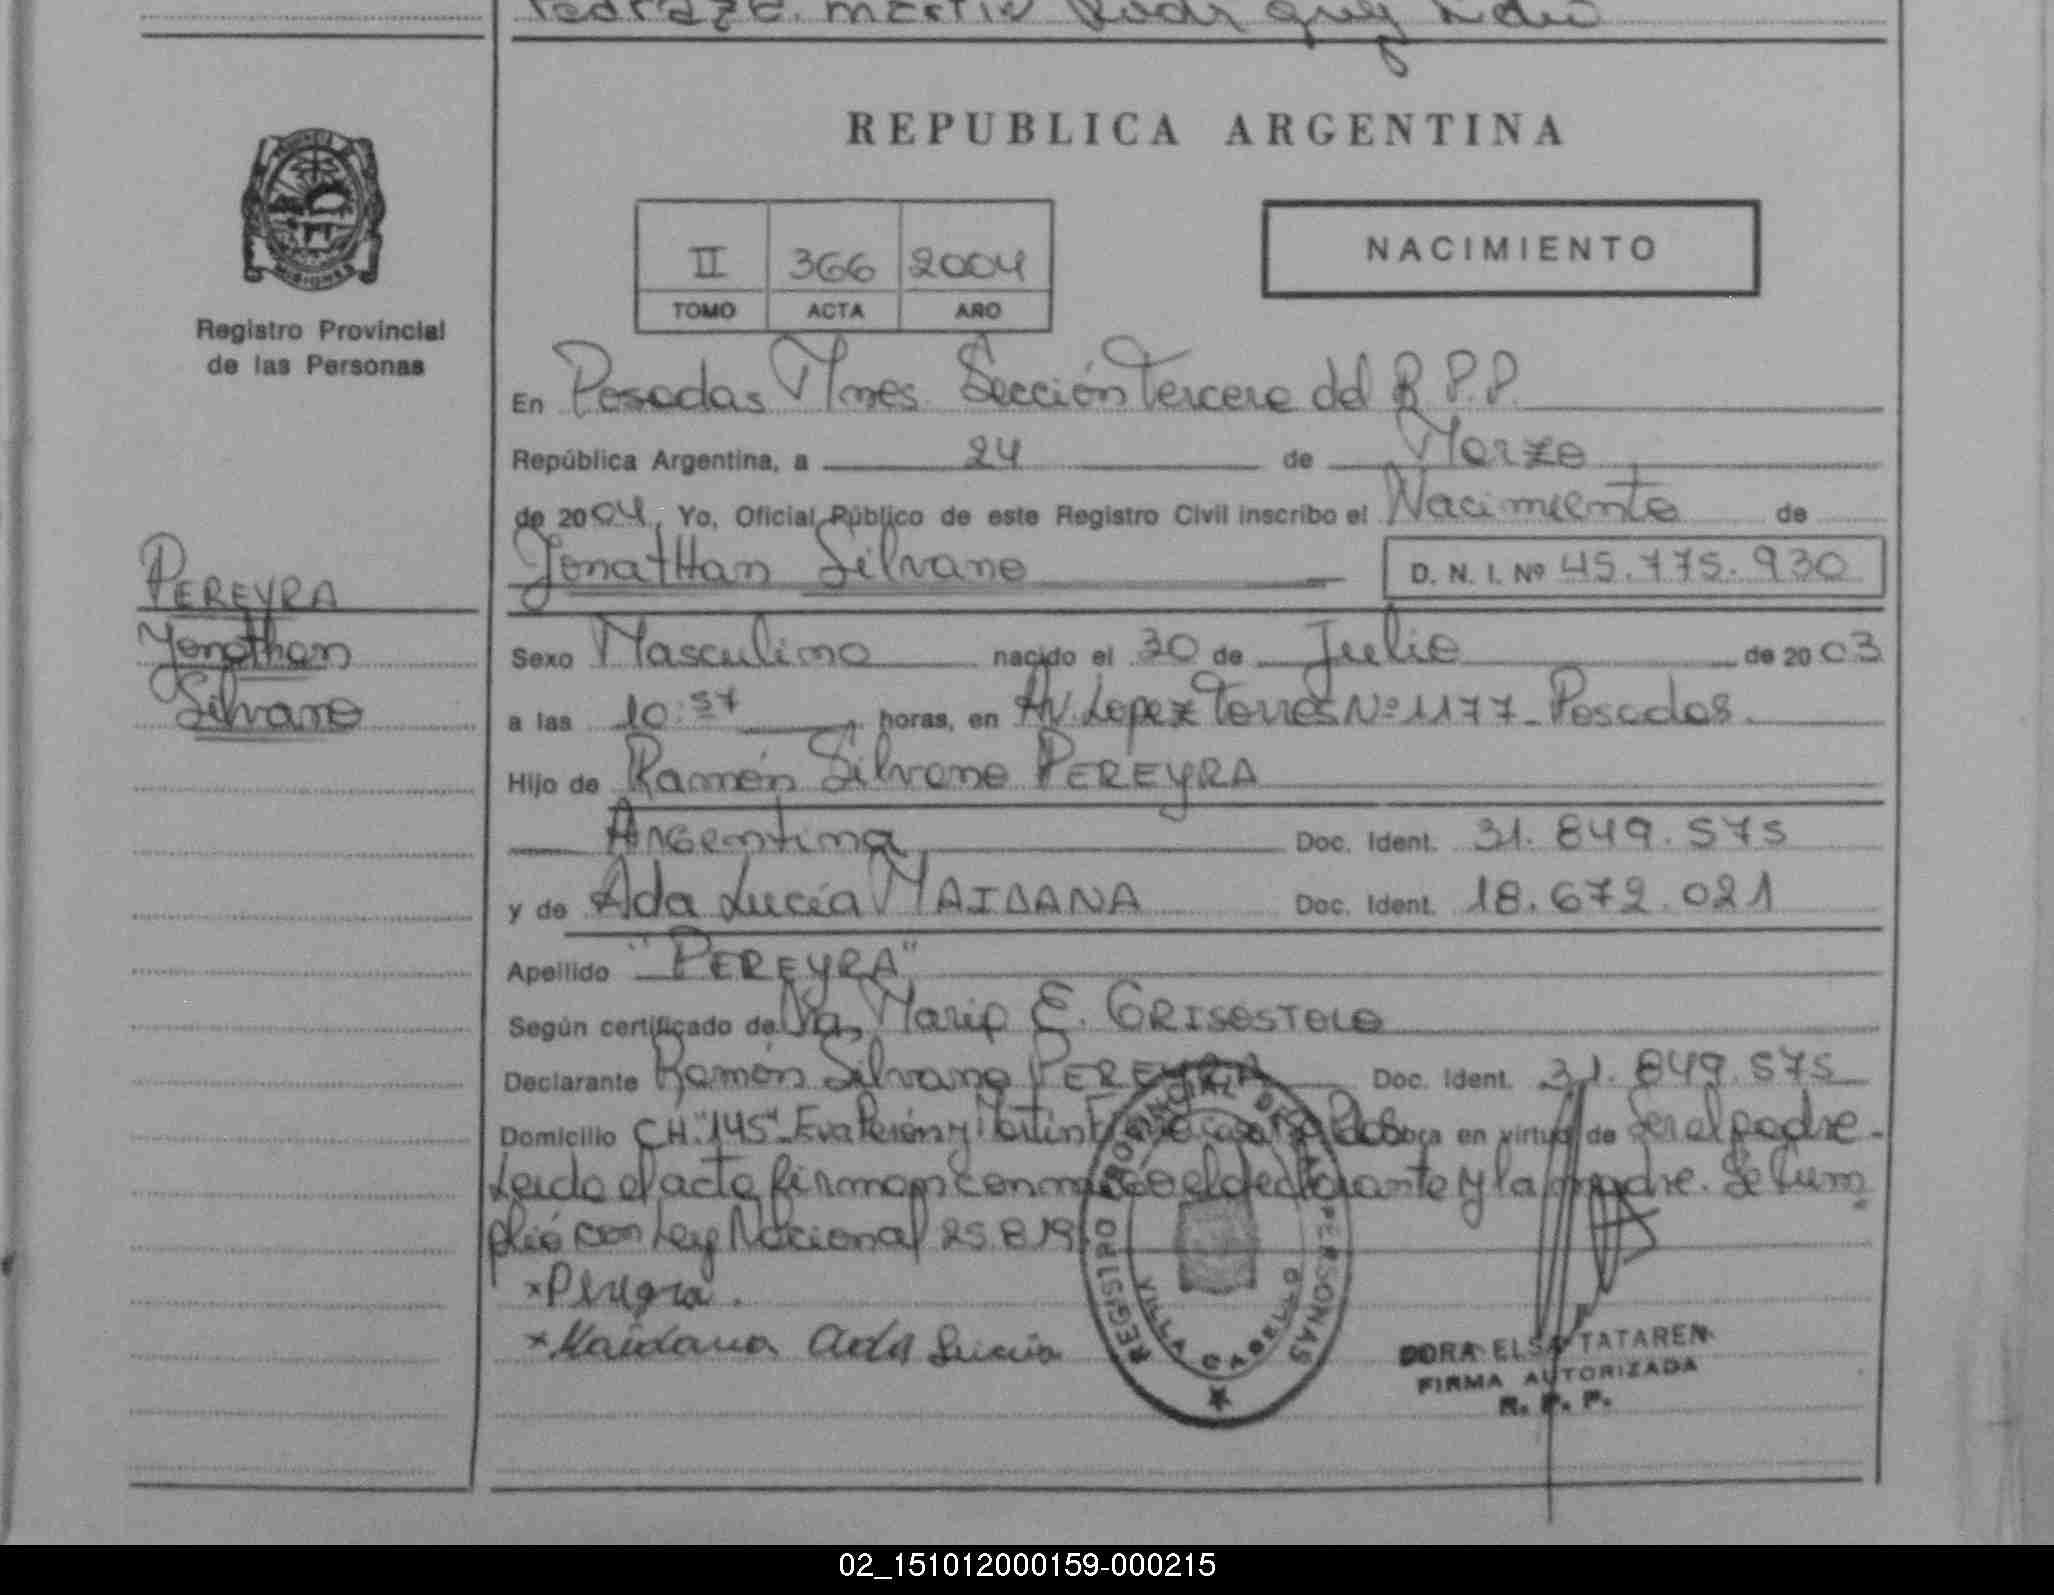 REPUBLICA ARGENTINA
II 366 2004
TOMO ACTA AÑO
NACIMIENTO
MISIONES
Registro Provincial
de las Personas
PEREYRA
Jonathan
Silvano
En Posadas Mnes. Sección Tercera del R.P.P.
República Argentina, a 24 de Marzo
de 2004, Yo, Oficial Público de este Registro Civil inscribo el Nacimiento de
Jonatthan Silvano D. N. I. Nº 45.775.930
Sexo Masculino nacido el 30 de Julio de 2003
a las 10:57 horas, en Av. Lopez Torres Nº 1177 - Posadas.
Hijo de Ramón Silvano PEREYRA
Argentina Doc. Ident. 31.849.575
y de Ada Lucía MAIDANA Doc. Ident. 18.672.021
Apellido "PEREYRA"
Según certificado de Dra. María E. GRISOSTOLO
Declarante Ramón Silvano PEREYRA Doc. Ident. 31.849.575
Domicilio CH. "145" - Eva Perón y Martin casa Pdas obra en virtud de ser el padre -
Leida el acta firman conmigo el declarante y la madre. Se Cum
plió con Ley Nacional 25.819
x Pereyra.
x Maidana Ada Lucia
REGISTRO PROVINCIAL DE LAS PERSONAS
VILLA CABELLO
DORA ELSA TATAREN
FIRMA AUTORIZADA
R. P. P.
02_151012000159-000215